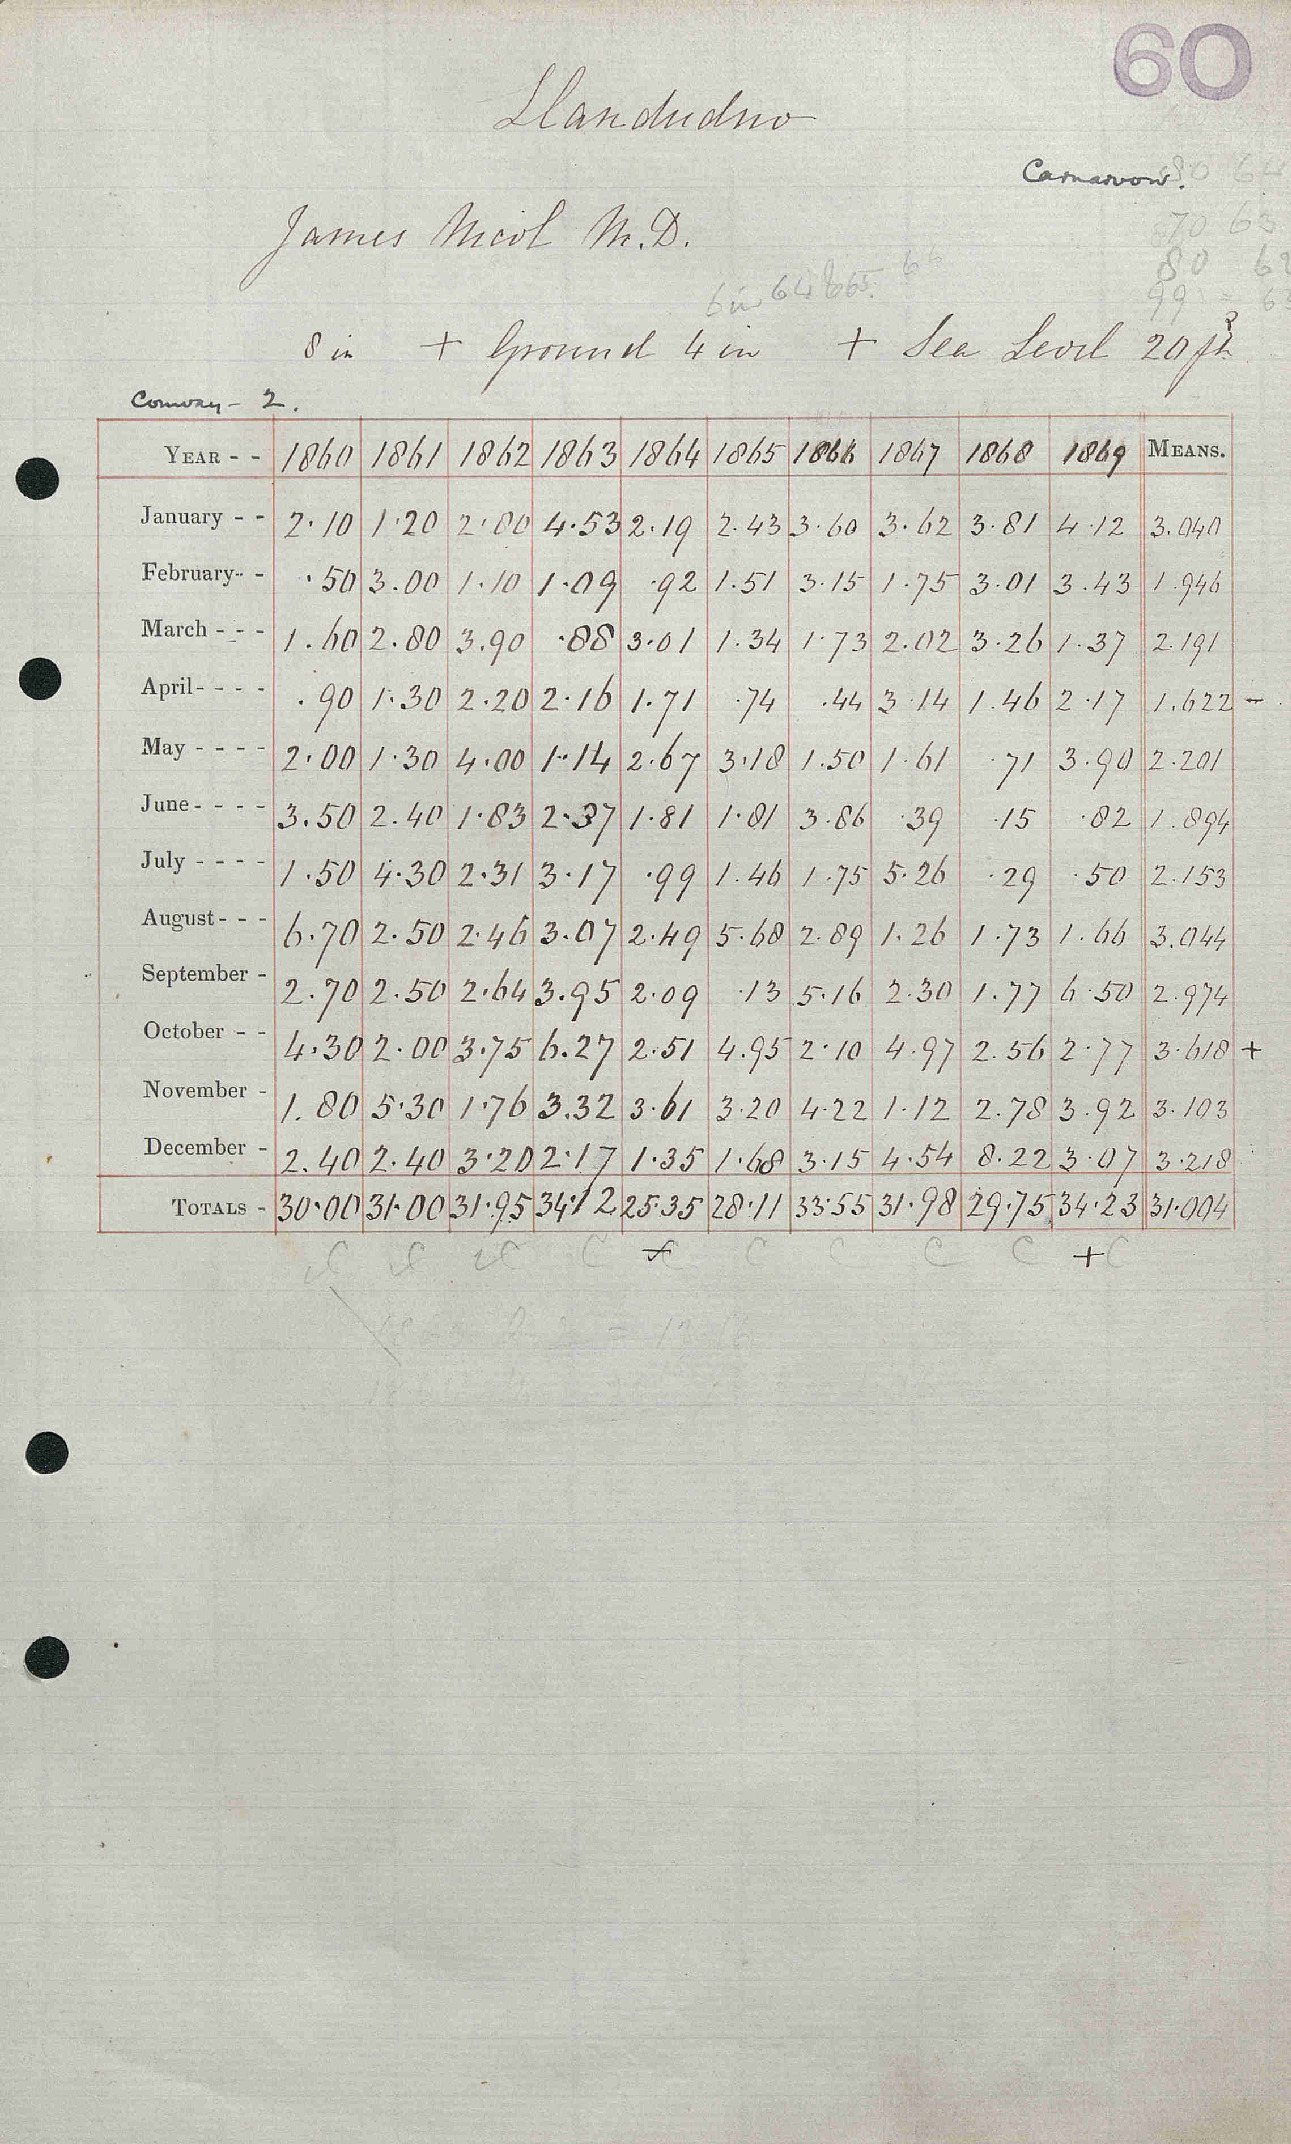 60
Llandudno
Carnarvon.
80 64
70 63
James Nicol M.D.
80 62
6 in 64 & 65. 66
99 = 63
8 in + Ground 4 in + Sea Level 20 ft
Conway - 2.
YEAR - - 1860 1861 1862 1863 1864 1865 1866 1867 1868 1869 MEANS.
January - - 2.10 1.20 2.80 4.53 2.19 2.43 3.60 3.62 3.81 4.12 3.040
February - - .50 3.00 1.10 1.09 .92 1.51 3.15 1.75 3.01 3.43 1.946
March - - - 1.60 2.80 3.90 .88 3.01 1.34 1.73 2.02 3.26 1.37 2.191
April - - - - .90 1.30 2.20 2.16 1.71 .74 .44 3.14 1.46 2.17 1.622 -
May - - - - 2.00 1.30 4.00 1.14 2.67 3.18 1.50 1.61 .71 3.90 2.201
June - - - - 3.50 2.40 1.83 2.37 1.81 1.81 3.86 .39 .15 .82 1.894
July - - - - 1.50 4.30 2.31 3.17 .99 1.46 1.75 5.26 .29 .50 2.153
August - - - 6.70 2.50 2.46 3.07 2.49 5.68 2.89 1.26 1.73 1.66 3.044
September - 2.70 2.50 2.64 3.95 2.09 .13 5.16 2.30 1.77 6.50 2.974
October - - 4.30 2.00 3.75 6.27 2.51 4.95 2.10 4.97 2.56 2.77 3.618 +
November - 1.80 5.30 1.76 3.32 3.61 3.20 4.22 1.12 2.78 3.92 3.103
December - 2.40 2.40 3.20 2.17 1.35 1.68 3.15 4.54 8.22 3.07 3.218
TOTALS - 30.00 31.00 31.95 34.12 25.35 28.11 33.55 31.98 29.75 34.23 31.004
C C C C C C C C C + C